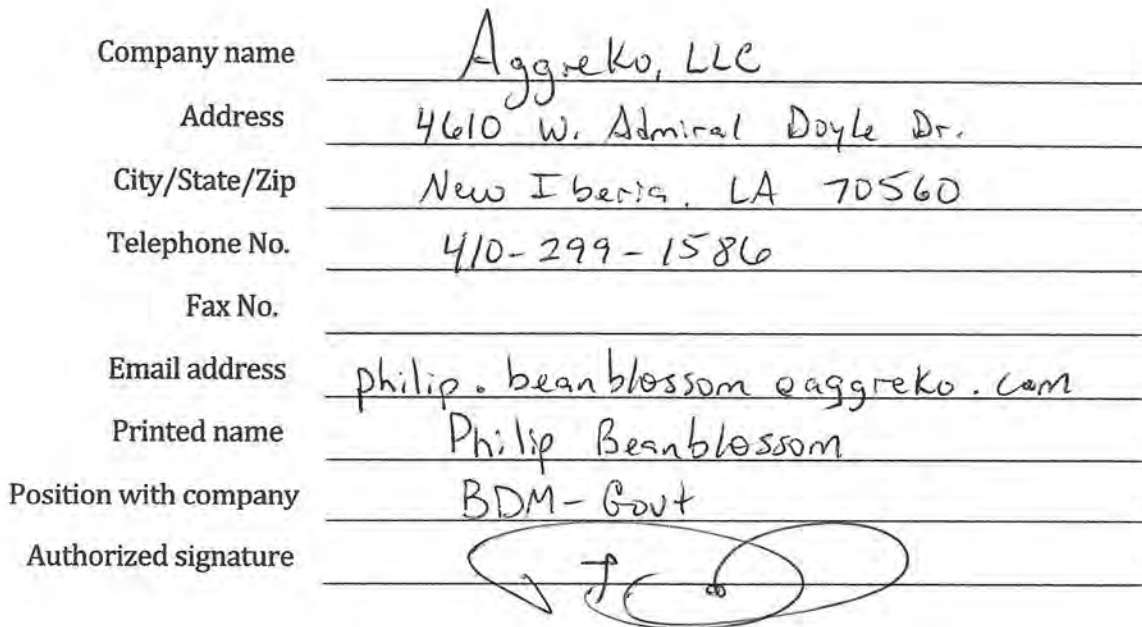 Company name Aggreko, LLC
Address 4610 W. Admiral Doyle Dr.
City/State/Zip New Iberia, LA 70560
Telephone No. 410-299-1586
Fax No.
Email address philip.beanblossom@aggreko.com
Printed name Philip Beanblossom
Position with company BDM-Govt
Authorized signature